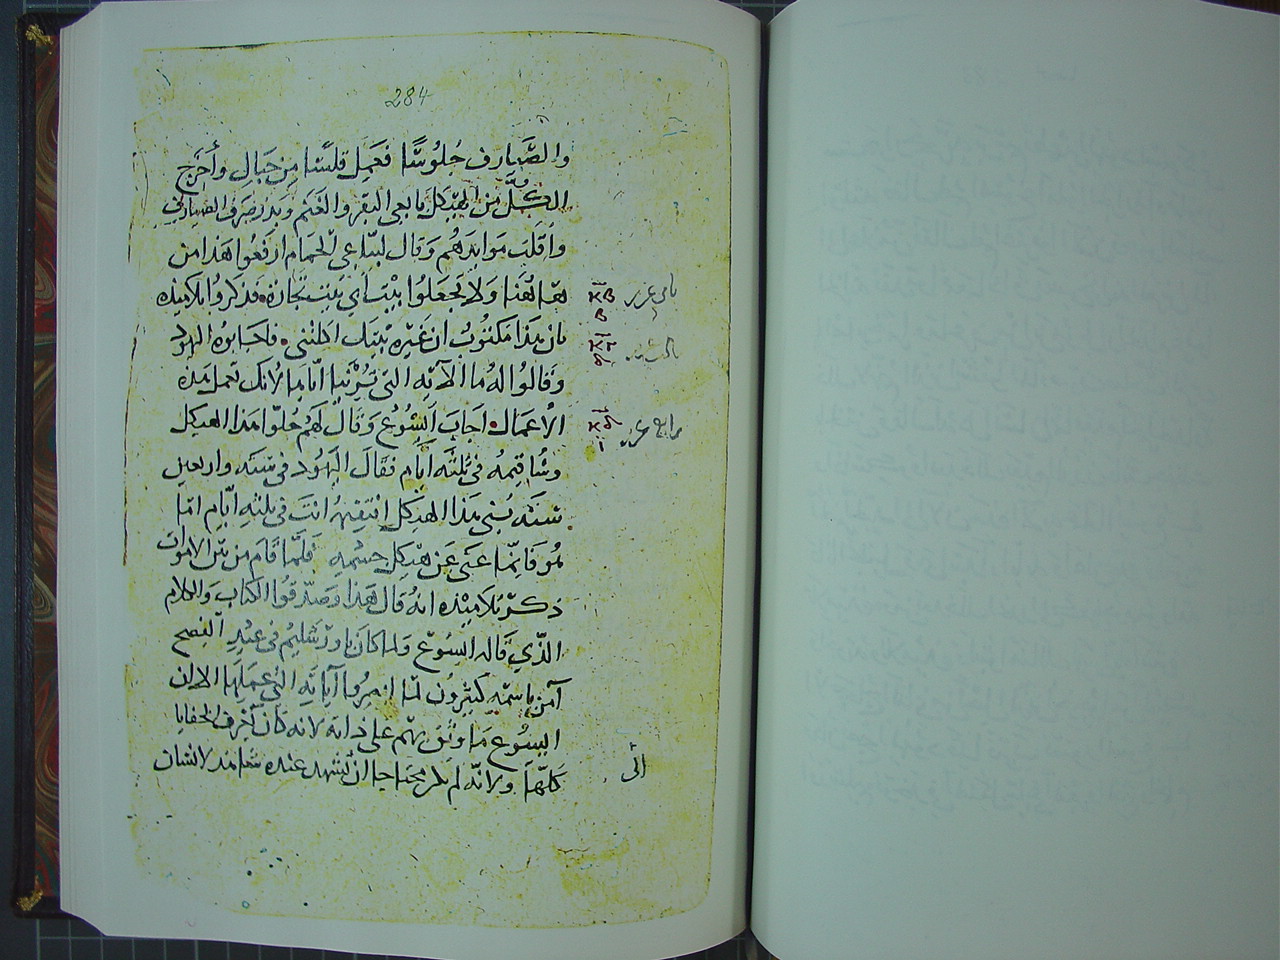 284
والصَّيارف جُلُوسًا فعَمِل قلسًا مِن حَبالٍ وأخرَج
الكُلَّ من الهَيْكل بايعى البقر والغَنَم وبدَّر صَرف الصيارفي
وأقلَبَ موايدَهُم وَقال لبيّاعى الحمَام ارفعُوا هَذا من
هَاهُنَا وَلا تجعَلُوا بيْت أبي بَيتِ تجارَة فذكروا تلاميذه
بان هذا مكتُوبٌ ان غَيْرة بيتك اكلتني فاجابوه اليهُود
وَقالُوا لهُ ما الآيَه التى تُرينَا ايّاها لانك تعمل هذه
الأعمَال اَجابَ اَيسُوعُ وَقال لَهُم حُلّوا هذا الهيكل
وسُاقيمُه فى ثلثَه ايّام فقَالَ اليَهُود فى ستَه واربعين
سنَه بُنى هذا الهيكل انتقيمهُ انتَ فى ثلثهِ ايّامِ امّا
هُو فَانّما عَنى عَن هَيكلِ جسْمِهِ فلمَّا قام من بَين الاموات
ذكرَ تلاميْذه انهُ قال هَذا وصَدّقُوا الكتاب وَالكلام
الذّي قاله اليسُوع وَلما كان باورشليم في عيدِ الفصح
آمن باسمهِ كثيرُون لمّا ابصرُوا آياتِهِ التى عملَهَا الا ان
اليسُوع مَا وثِق بهم على ذاته لانه كان يَعرف الخفايا
كلّهَا ولانّه لم يكن محتاجا ان يشهد عنده شاهد لانسان